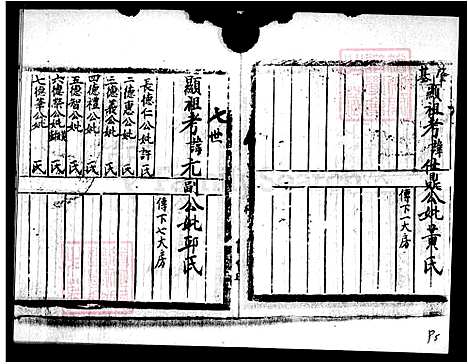 肇基
顯祖考諱仕鼎公妣黃氏
傳下一大房
七世
顯祖考諱元副公妣邱氏
傳下七大房
長德仁公妣許氏
二德惠公妣 氏
三德義公妣 氏
四德禮公妣 氏
五德智公妣 氏
六德 公妣 氏
七德 公妣 氏
P5